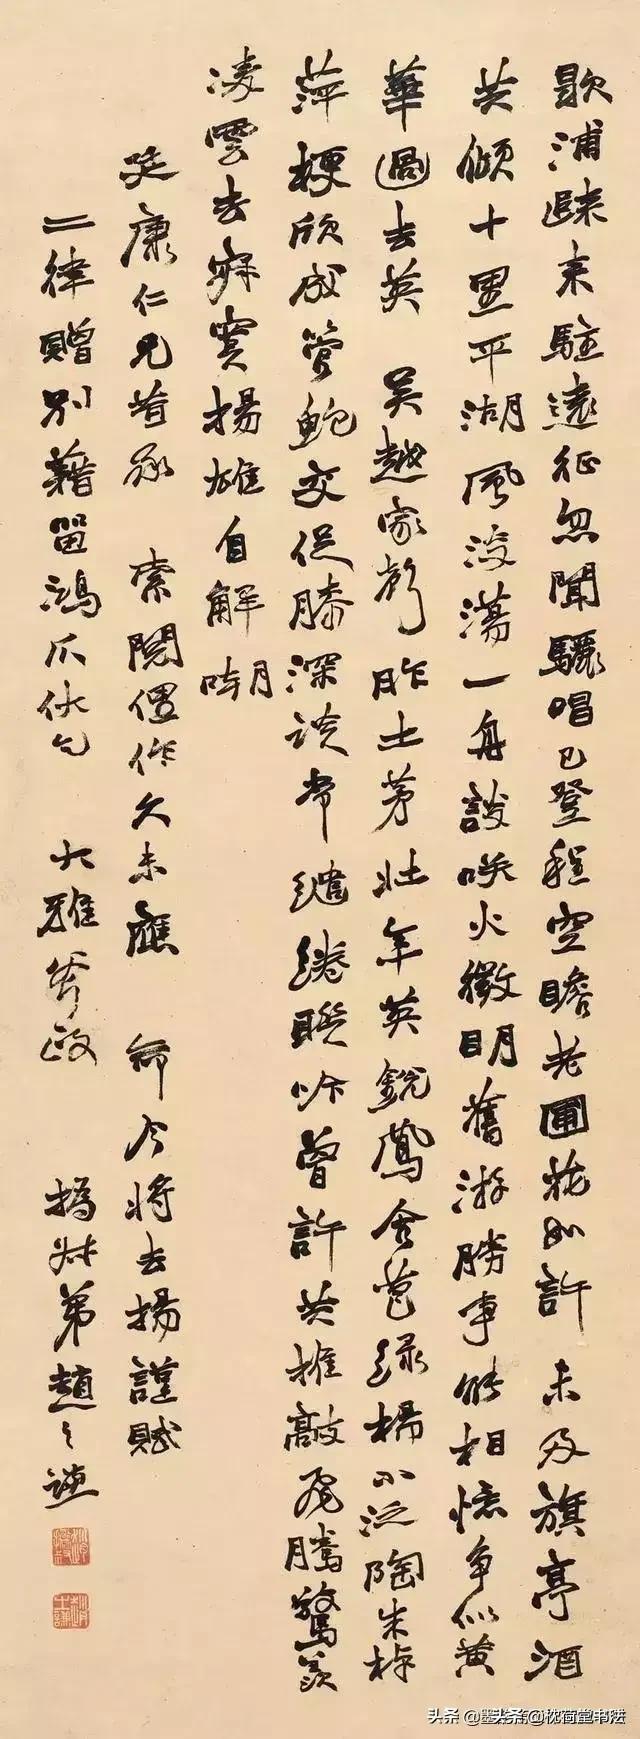 歇浦歸来駐遠征忽聞驪唱已登程空瞻老圃花如許未及旗亭酒
共傾十里平湖風浚蕩一舟談咲火微明舊游勝事能相憶争似黄
華過去英 吴越家聲胙土茅壯年英銳鳳含苞緑楊小泛陶朱棹
萍梗欣成管鮑交促膝深談常繾綣聯吟曾許共推敲飛騰驚羡
淩雲去寂寞揚雄自解嘲
廷康仁兄首承 索閱俚作久未應 命今将去揚謹賦
二律贈别藉留鴻爪伏乞 大雅斧政 撝叔弟趙之謙
頭条 @枕荷堂书法